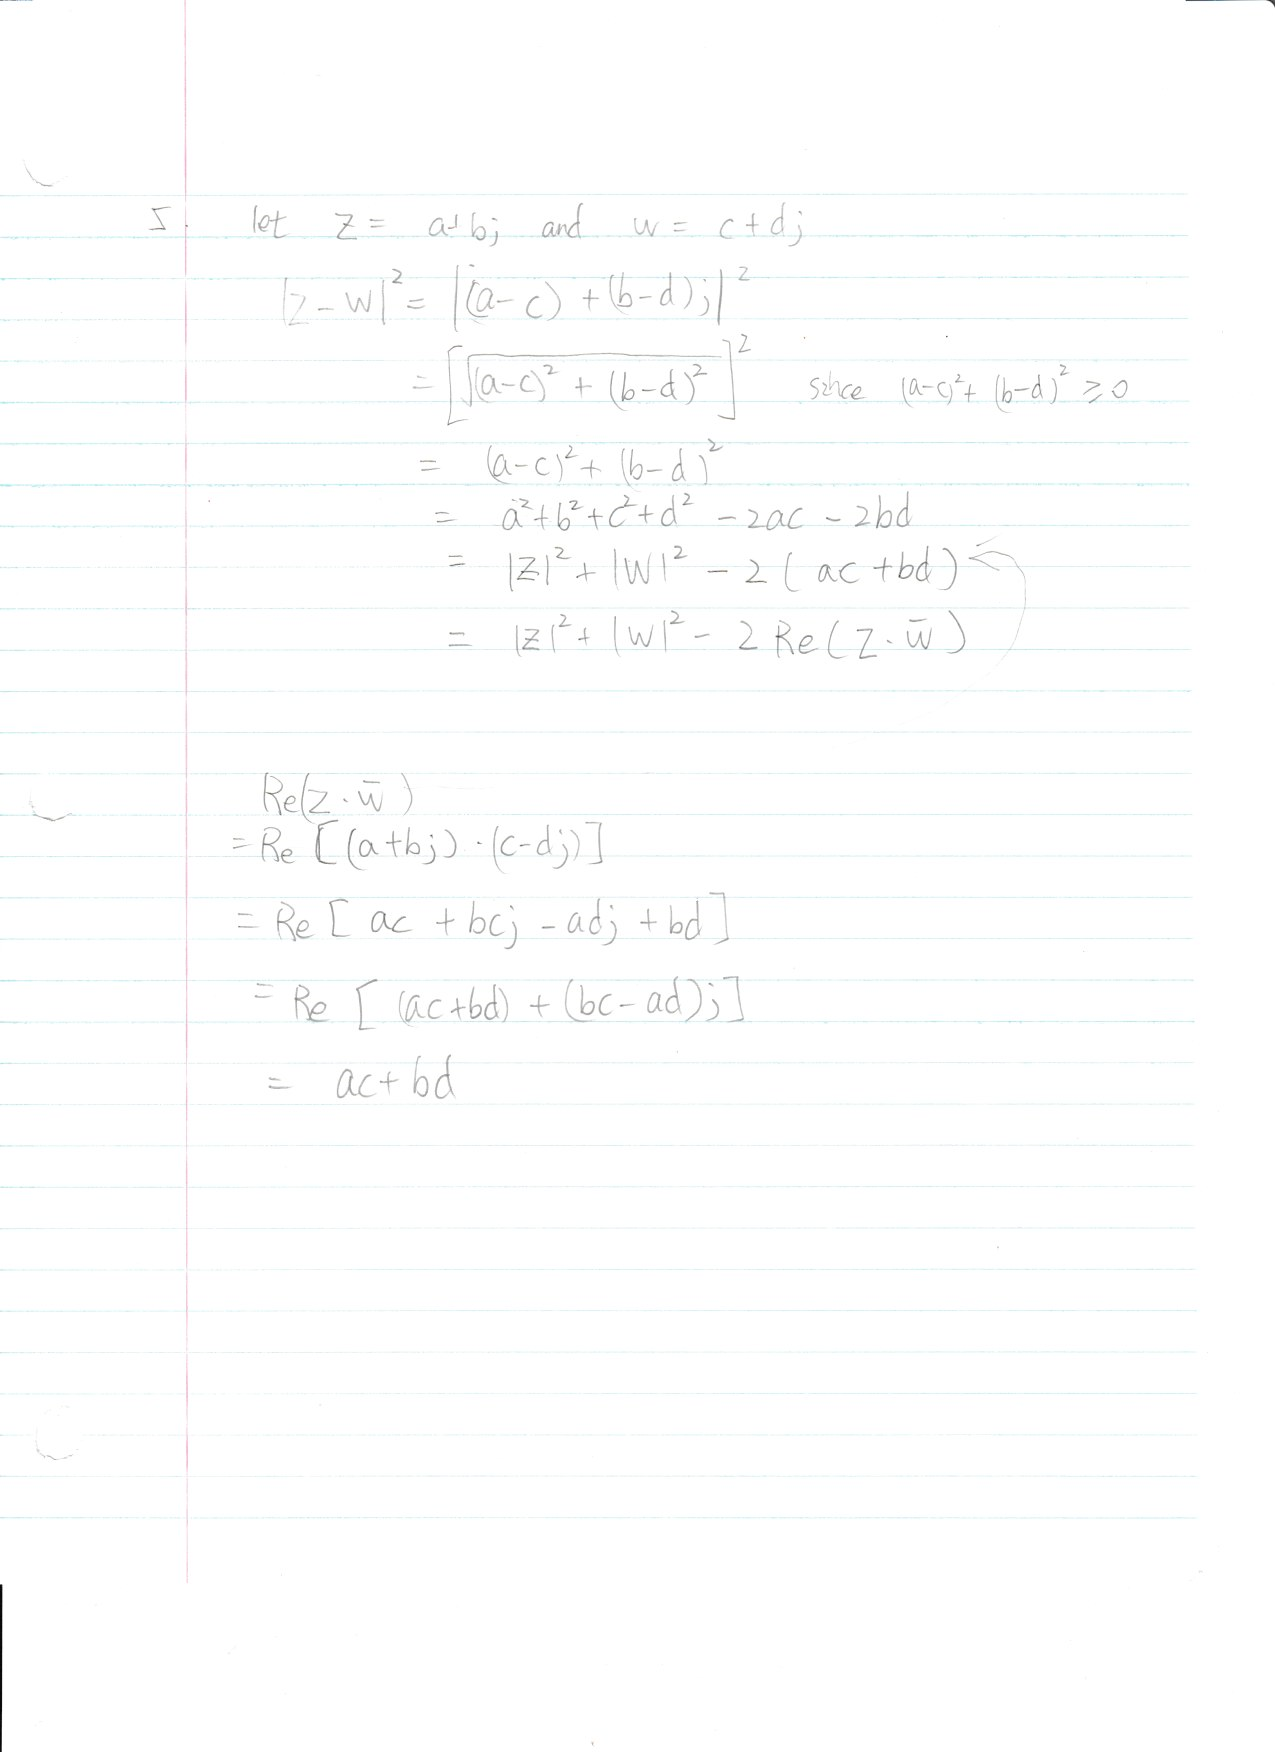 5. let z = a+bj and w = c+dj
|z-w|² = |(a-c) + (b-d)j|²
= [√((a-c)² + (b-d)²)]² since (a-c)² + (b-d)² ≥ 0
= (a-c)² + (b-d)²
= a²+b²+c²+d² - 2ac - 2bd
= |z|² + |w|² - 2(ac+bd)
= |z|² + |w|² - 2Re(z·w̄)
Re(z·w̄)
= Re[(a+bj)·(c-dj)]
= Re[ac + bcj - adj + bd]
= Re[(ac+bd) + (bc-ad)j]
= ac+bd